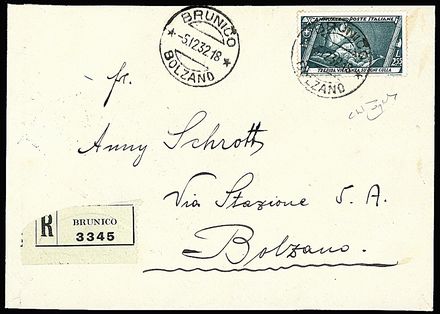 BRUNICO
* -5.12.32.18 *
BOLZANO
POSTE ITALIANE
BRUNICO
BOLZANO
fr.
Anny Schrott
Via Stazione 5. A.
Bolzano.
R BRUNICO
3345